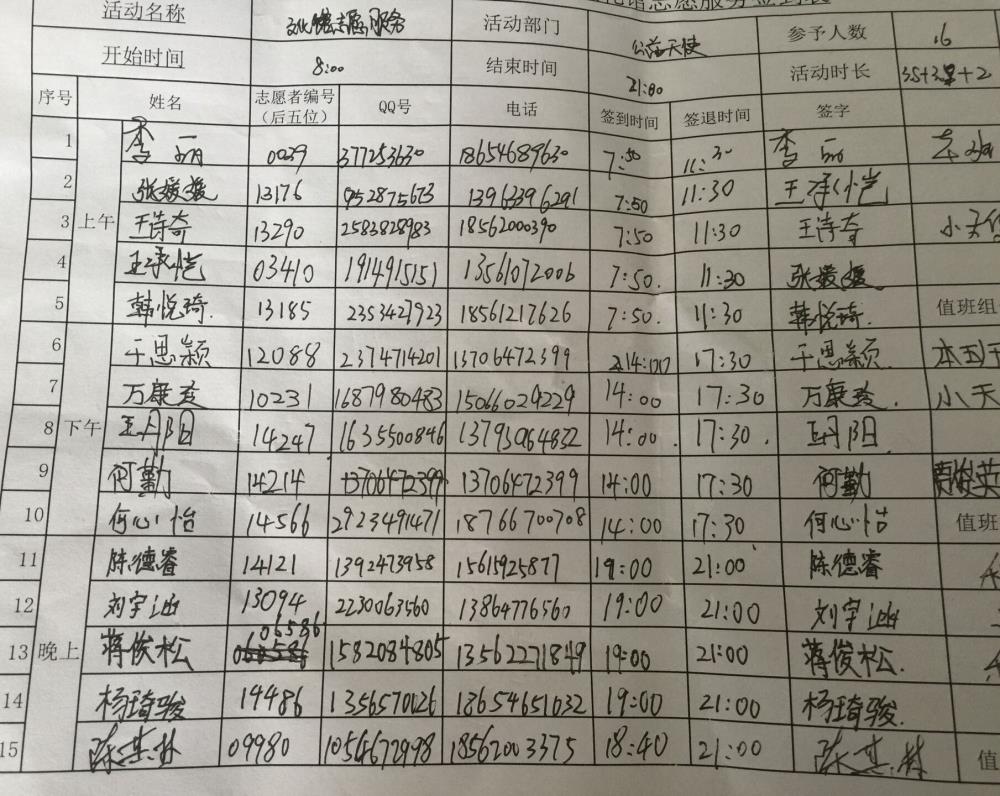 志愿服务签到表
活动名称 文化馆志愿服务 活动部门 公益天使 参予人数 16
开始时间 8:00 结束时间 21:00 活动时长
序号 姓名 志愿者编号（后五位） QQ号 电话 签到时间 签退时间 签字
上午
1 李丽 0039 377253630 18654689630 7:50 11:30 李丽
2 张媛媛 13176 952875673 13963396291 7:50 11:30 王承恺
3 王诗奇 13290 2583828983 18562000390 7:50 11:30 王诗奇
4 王承恺 03410 191491515 13561072006 7:50. 11:30 张媛媛
5 韩悦琦. 13185 2353427923 18561217626 7:50. 11:30 韩悦琦. 值班组
下午
6 于思颖 12088 2374714201 13706472399 14:00 17:30 于思颖
7 万康玹 10231 1687980483 15066029229 14:00 17:30 万康玹. 小天
8 王月阳 14247 1635500846 13793064832 14:00. 17:30. 王月阳
9 何勤 14214 13706472399 13706472399 14:00 17:30 何勤
10 何心怡 14566 2923491471 18766700708 14:00 17:30 何心怡 值班
晚上
11 陈德睿 14121 1392473958 15615925877 19:00 21:00 陈德睿
12 刘宇涵 13094 2230063560 13864776560 19:00 21:00 刘宇涵
13 蒋俊松 06586 1582084805 13562271849 19:00 21:00 蒋俊松.
14 杨琦骏 14486 1356570126 18654651032 19:00 21:00 杨琦骏.
15 陈其林 09980 1054672998 18562003375 18:40 21:00 陈其林 值